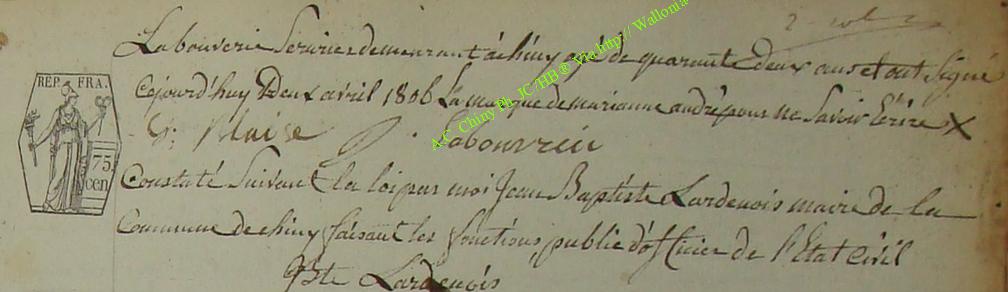 Labouverie Serrurier demeurant à chiny agé de quarante deux ans et ont Signé
Cejourd'huy Deux avril 1806 La marque de marianne andré pour ne Savoir Ecrire X
REP. FRA.
75 cen
J: Maise J. Labouverie
Constaté Suivant la loi par moi Jean Baptiste Lardenois maire de la
Commune de chiny faisant les fonctions public d'officier de l'Etat Civil
JBte Lardenois
A.C. Chiny Ph. JC/HB ® Via http://Wallonia